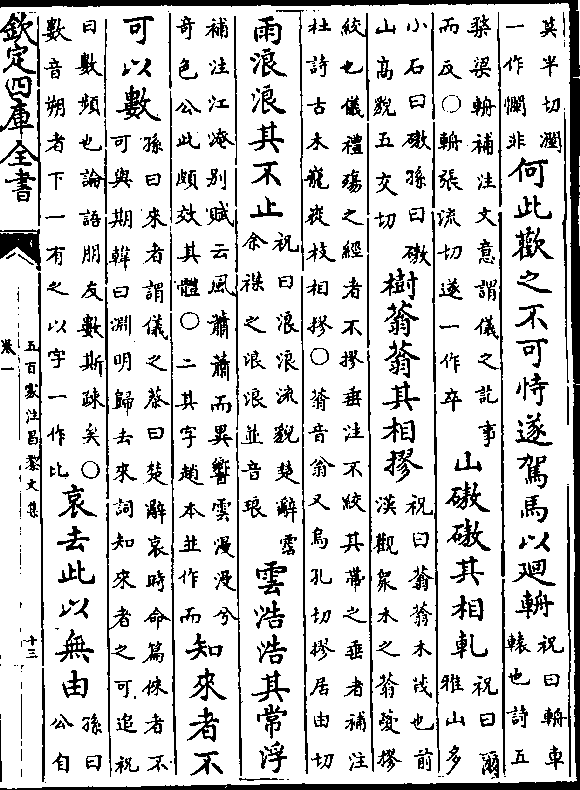 其半切瀾
一作憪非
何此歡之不可恃遂駕馬以迴輈
祝曰輈車
轅也詩五
楘梁輈補注文意謂儀之記事
而反○輈張流切遂一作卒
山磝磝其相軋
祝曰爾
雅山多
小石曰磝孫曰磝
山高貌五交切
樹蓊蓊其相摎
祝曰蓊蓊木茂也前
漢觀衆木之蓊薆摎
絞也儀禮殤之經者不摎垂注不絞其帶之垂者補注
杜詩古木巃嵸枝相摎○蓊音翁又烏孔切摎居由切
雨浪浪其不止
祝曰浪浪流貌楚辭霑
余襟之浪浪並音琅
雲浩浩其常浮
補注江淹别賦云風蕭蕭而異響雲漫漫兮
奇色公此頗效其體○二其字趙本並作而
知來者不
可以數
孫曰來者謂儀之蔡曰楚辭哀時命篇倈者不
可與期韓曰淵明歸去來詞知來者之可追祝
曰數頻也論語朋友數斯疎矣○
數音朔者下一有之以字一作比
哀去此以無由
孫曰
公自
欽定四庫全書
卷一
五百家注昌黎文集
十三